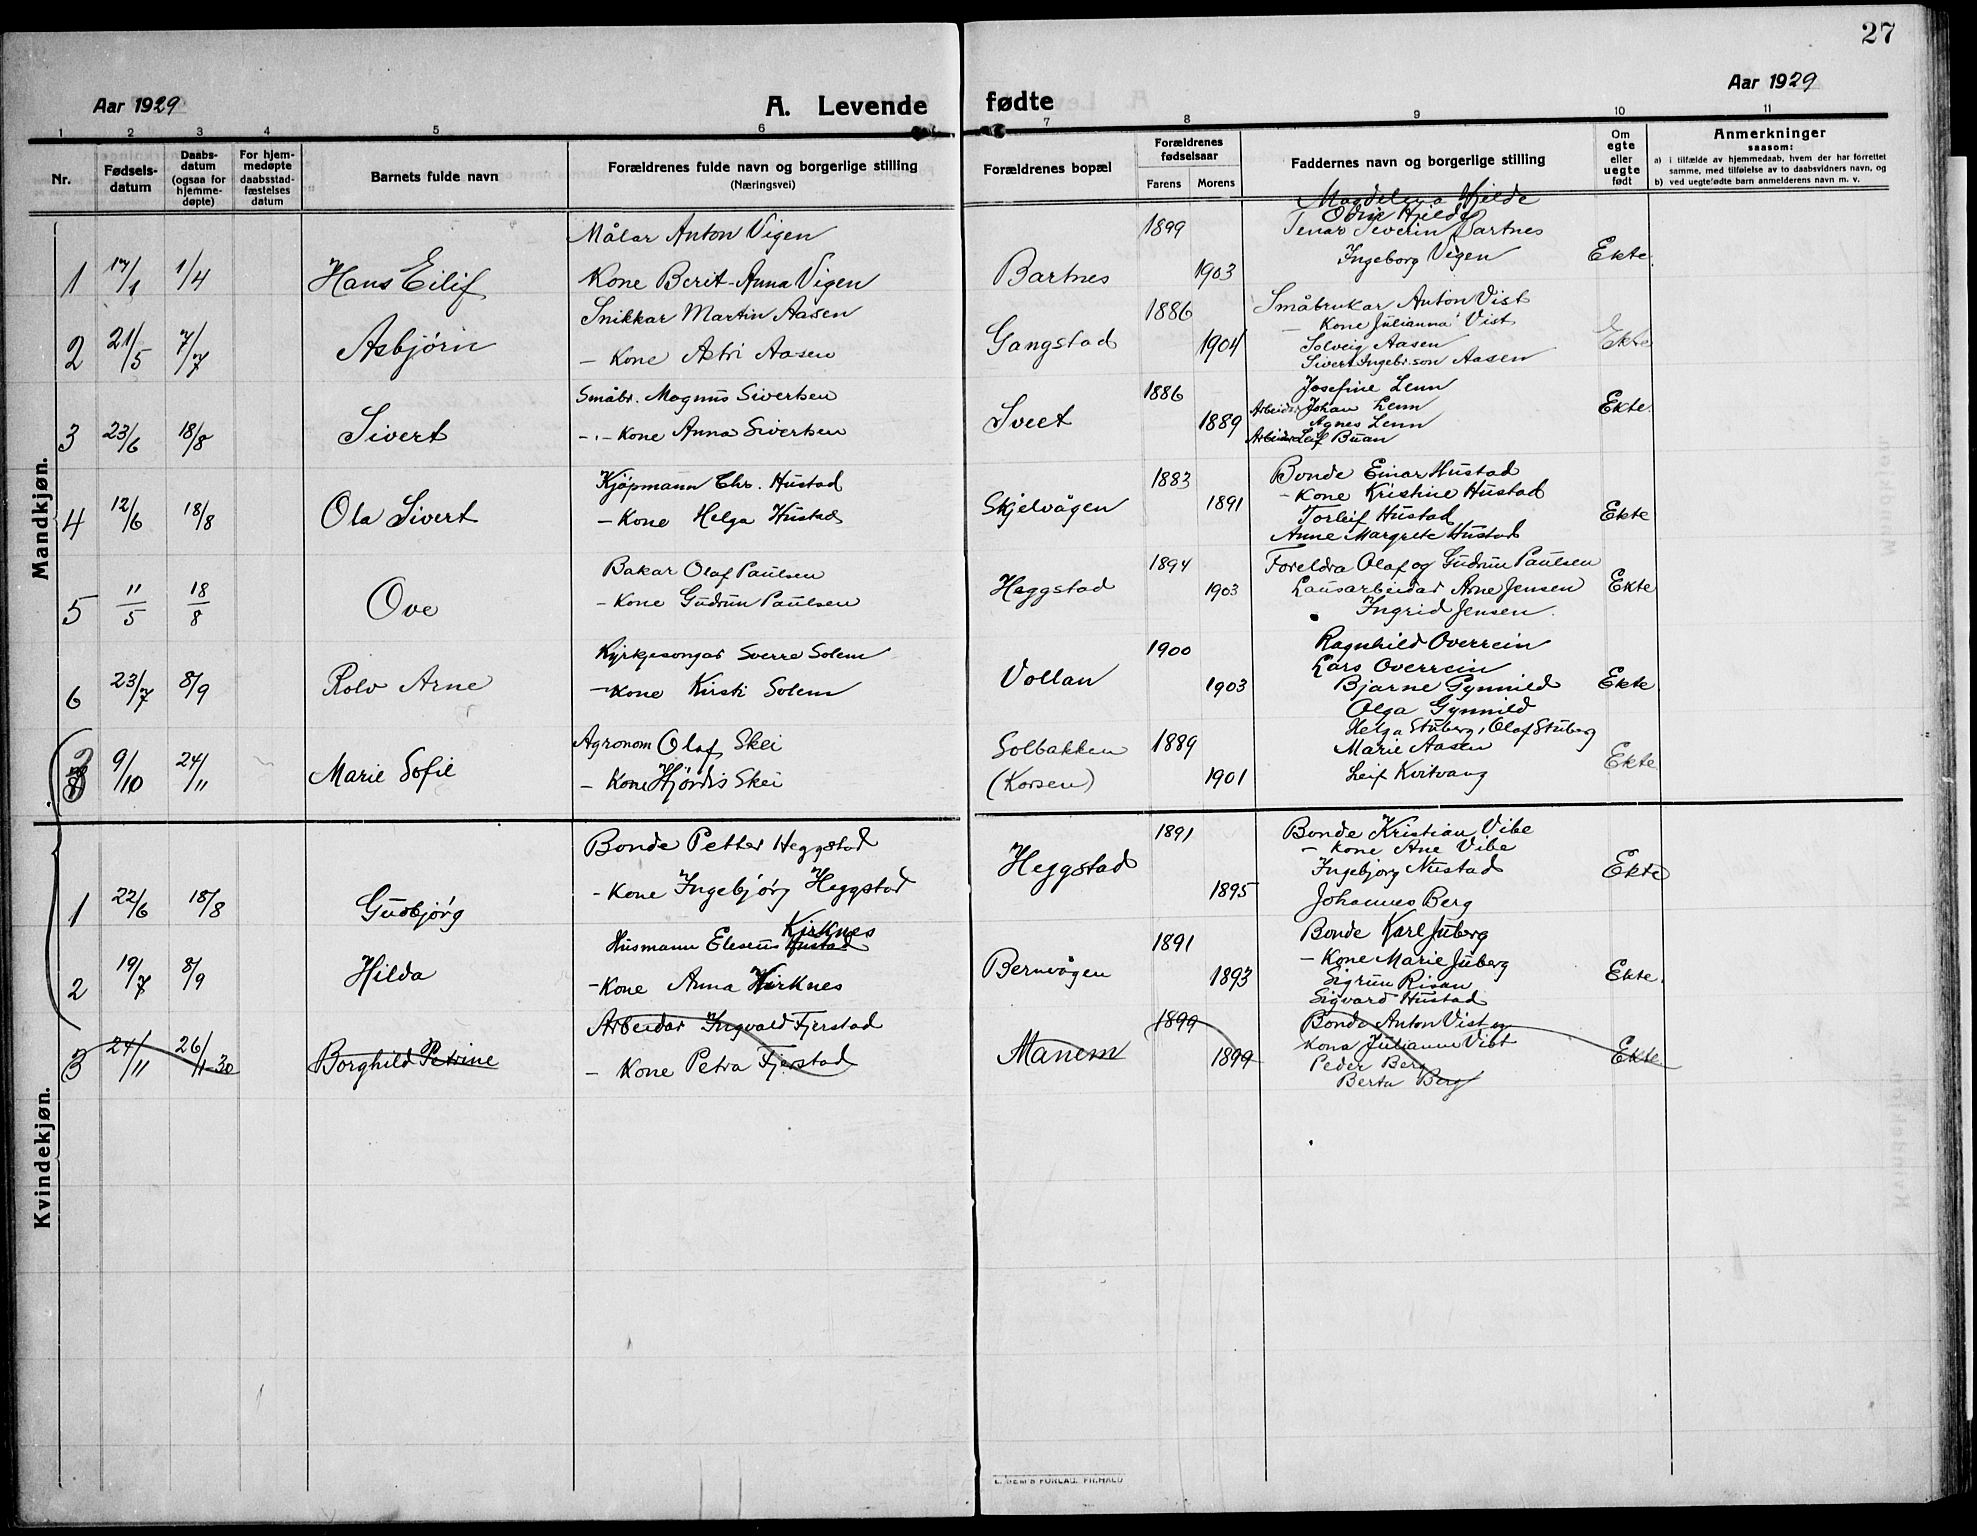 27
Aar 1929
A. Levende fødte
Aar 1929
1 2 3 4 5 6 7 8 9 10 11
Nr.
Fødsels-datum
Daabs-datum (ogsaa for hjemme-døpte)
For hjem-medøpte daabsstad-fæstelses datum
Barnets fulde navn
Forældrenes fulde navn og borgerlige stilling
(Næringsvei)
Forældrenes bopæl
Forældrenes fødselsaar
Farens Morens
Faddernes navn og borgerlige stilling
Om egte eller uegte født
Anmerkninger
saasom:
a) i tilfælde av hjemmedaab, hvem der har forrettet samme, med tilføielse av to daabsvidners navn, og
b) ved uegtefødte barn anmelderens navn m. v.
Mandkjøn.
1 17/1 1/4 Hans Eilif
Målar Anton Vigen
Kone Berit-Anna Vigen
Bartnes 1899 1903
Magdelena Hjelde
Odin Hjelde
Severin Bartnes
Ingeborg Vigen
Ekte.
2 21/5 7/7 Asbjørn
Snikkar Martin Aasen
- Kone Astri Aasen
Gangstad 1886 1904
Småbrukar Anton Vist
- Kone Julianna Vist
Solveig Aasen
Sivert Ingebr.son Aasen
Ekte
3 23/6 18/8 Sivert
Småbr. Magnus Sivertsen
-.- Kone Anna Sivertsen
Sveet 1886 1889
Josefine Lenn
Arbeidar Johan Lenn
Agnes Lenn
Arbeidar Leif Buan
Ekte.
4 12/6 18/8 Ola Sivert
Kjøpmann Chr. Hustad
- Kone Helga Hustad
Skjelvågen 1883 1891
Bonde Einar Hustad
- Kone Kristine Hustad
Torleif Hustad
Anne Margrete Hustad
Ekte
5 11/5 18/8 Ove
Bakar Olaf Paulsen
- Kone Gudrun Paulsen
Heggstad 1894 1903
Foreldra Olaf og Gudrun Paulsen
Lausarbeidar Arne Jensen
Ingrid Jensen.
Ekte
6 23/7 8/9 Rolv Arne
Kyrkjesongar Sverre Solem
- Kone Kirsti Solem
Vollan 1900 1903
Ragnhild Overrein
Lars Overrein
Bjarne Gynnild
Olga Gynnild
Ekte
3 9/10 24/11 Marie Sofie
Agronom Olaf Skei
- Kone Hjørdis Skei
Solbakken
(Korsen)
1889 1901
Helga Stuberg, Olaf Stuberg
Marie Aasen
Leif Kvitvang
Ekte
Kvindekjøn.
1 22/6 18/8 Gudbjørg
Bonde Petter Heggstad
- Kone Ingebjørg Heggstad
Heggstad 1891 1895
Bonde Kristian Vibe
- Kone Ane Vibe
Ingebjørg Nustad
Johannes Berg
Ekte
2 19/7 8/9 Hilda
Kirknes
Husmann Eleseus Hustad
- Kone Anna Kirknes
Bernvågen 1891 1893
Bonde Karl Juberg
- Kone Marie Juberg
Sigrun Risan
Sigvard Hustad
Ekte.
3 24/11 26/11-30 Borghild Petrine
Arbeidar Ingvald Fjerstad
- Kone Petra Fjerstad
Manem 1899 1899
Bonde Anton Vist og
Kona Julianne Vist
Peder Berg
Berta Berg
Ekte